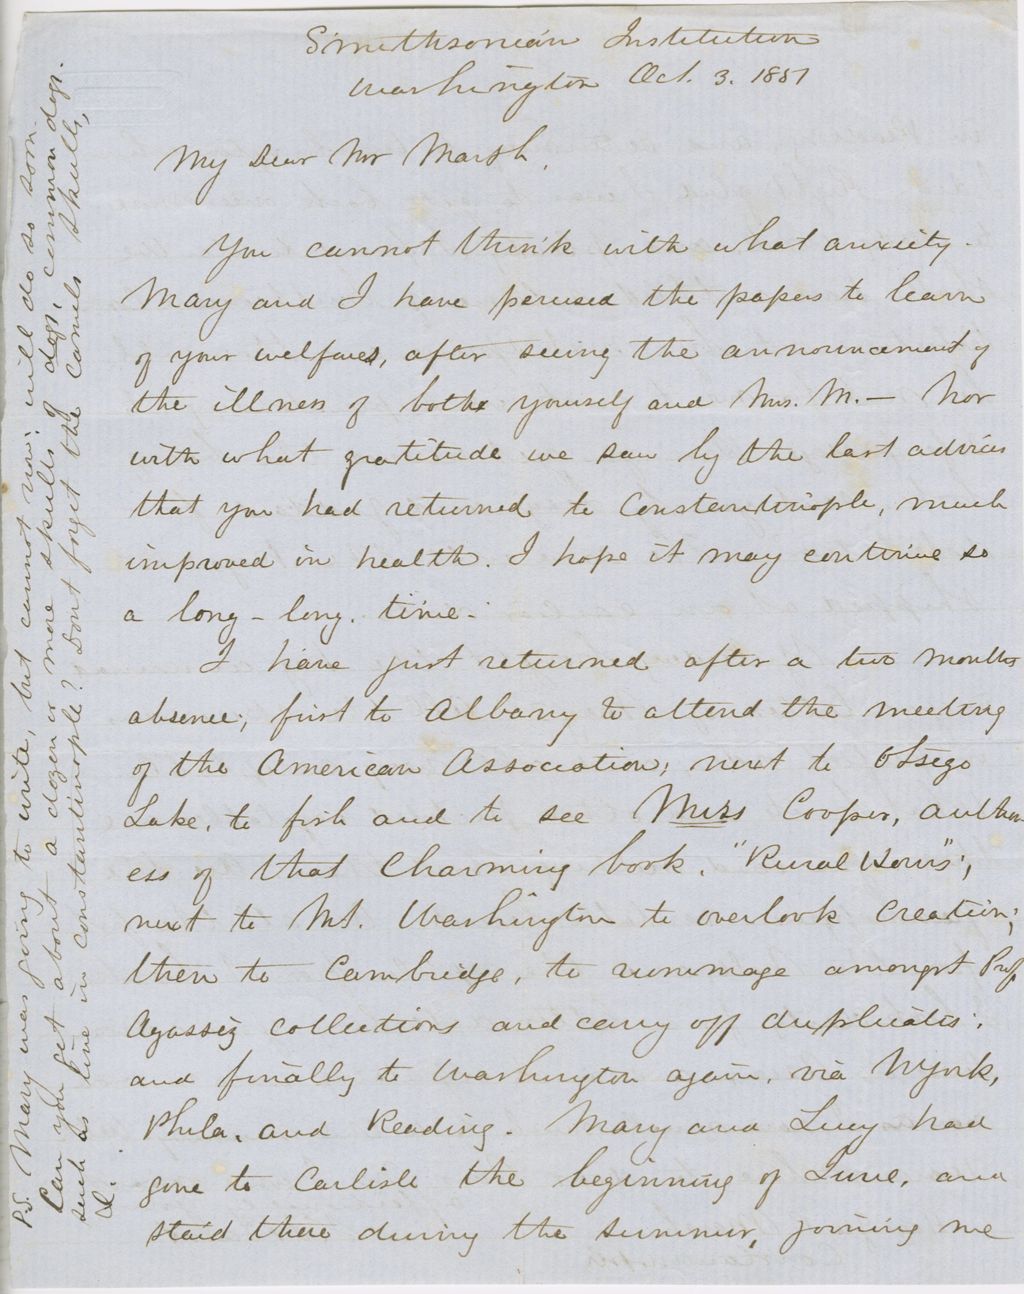 Smithsonian Institution
Washington Oct. 3. 1851
My Dear Mr Marsh,
You cannot think with what anxiety
Mary and I have perused the papers to learn
of your welfare, after seeing the announcement of
the illness of both yourself and Mrs. M. — Nor
with what gratitude we saw by the last advices
that you had returned to Constantinople, much
improved in health. I hope it may continue so
a long - long. time.
I have just returned after a two months
absence, first to Albany to attend the meeting
of the American Association; next to Otsego
Lake, to fish and to see Miss Cooper, author
ess of that charming book, "Rural Hours";
next to Mt. Washington to overlook creation;
then to Cambridge, to rummage amongst Prof
Agassiz collections and carry off duplicates;
and finally to Washington again, via NYork,
Phila. and Reading. Mary and Lucy had
gone to Carlisle the beginning of June, and
staid there during the summer, joining me
P.S. Mary was going to write, but cannot now; will do so soon.
Can you get about a dozen or more skulls of dogs; common dogs.
such as live in Constantinople? Dont forget the camels skulls,
&.